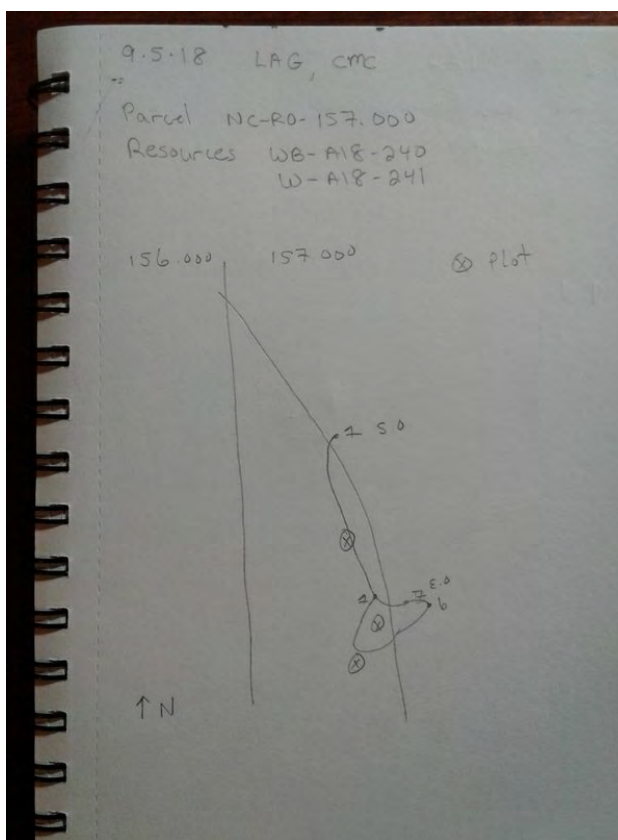 9.5.18 LAG, CMC
Parcel NC-RO-157.000
Resources WB-A18-240
W-A18-241
156.000 157.000 ⊗ Plot
1 50
1
7 E.O
6
↑ N